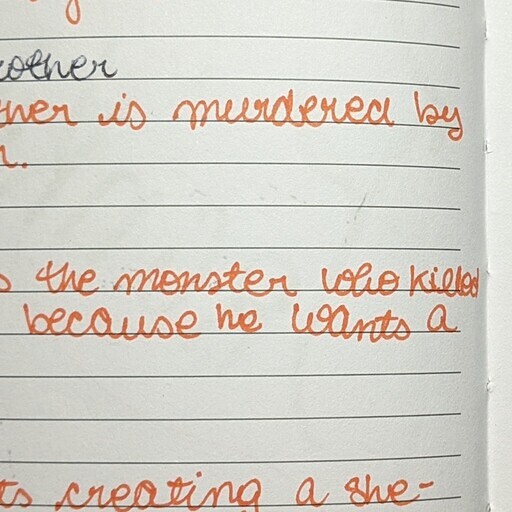 other
ther is murdered by
the monster who killed
because he wants a
ts creating a she-